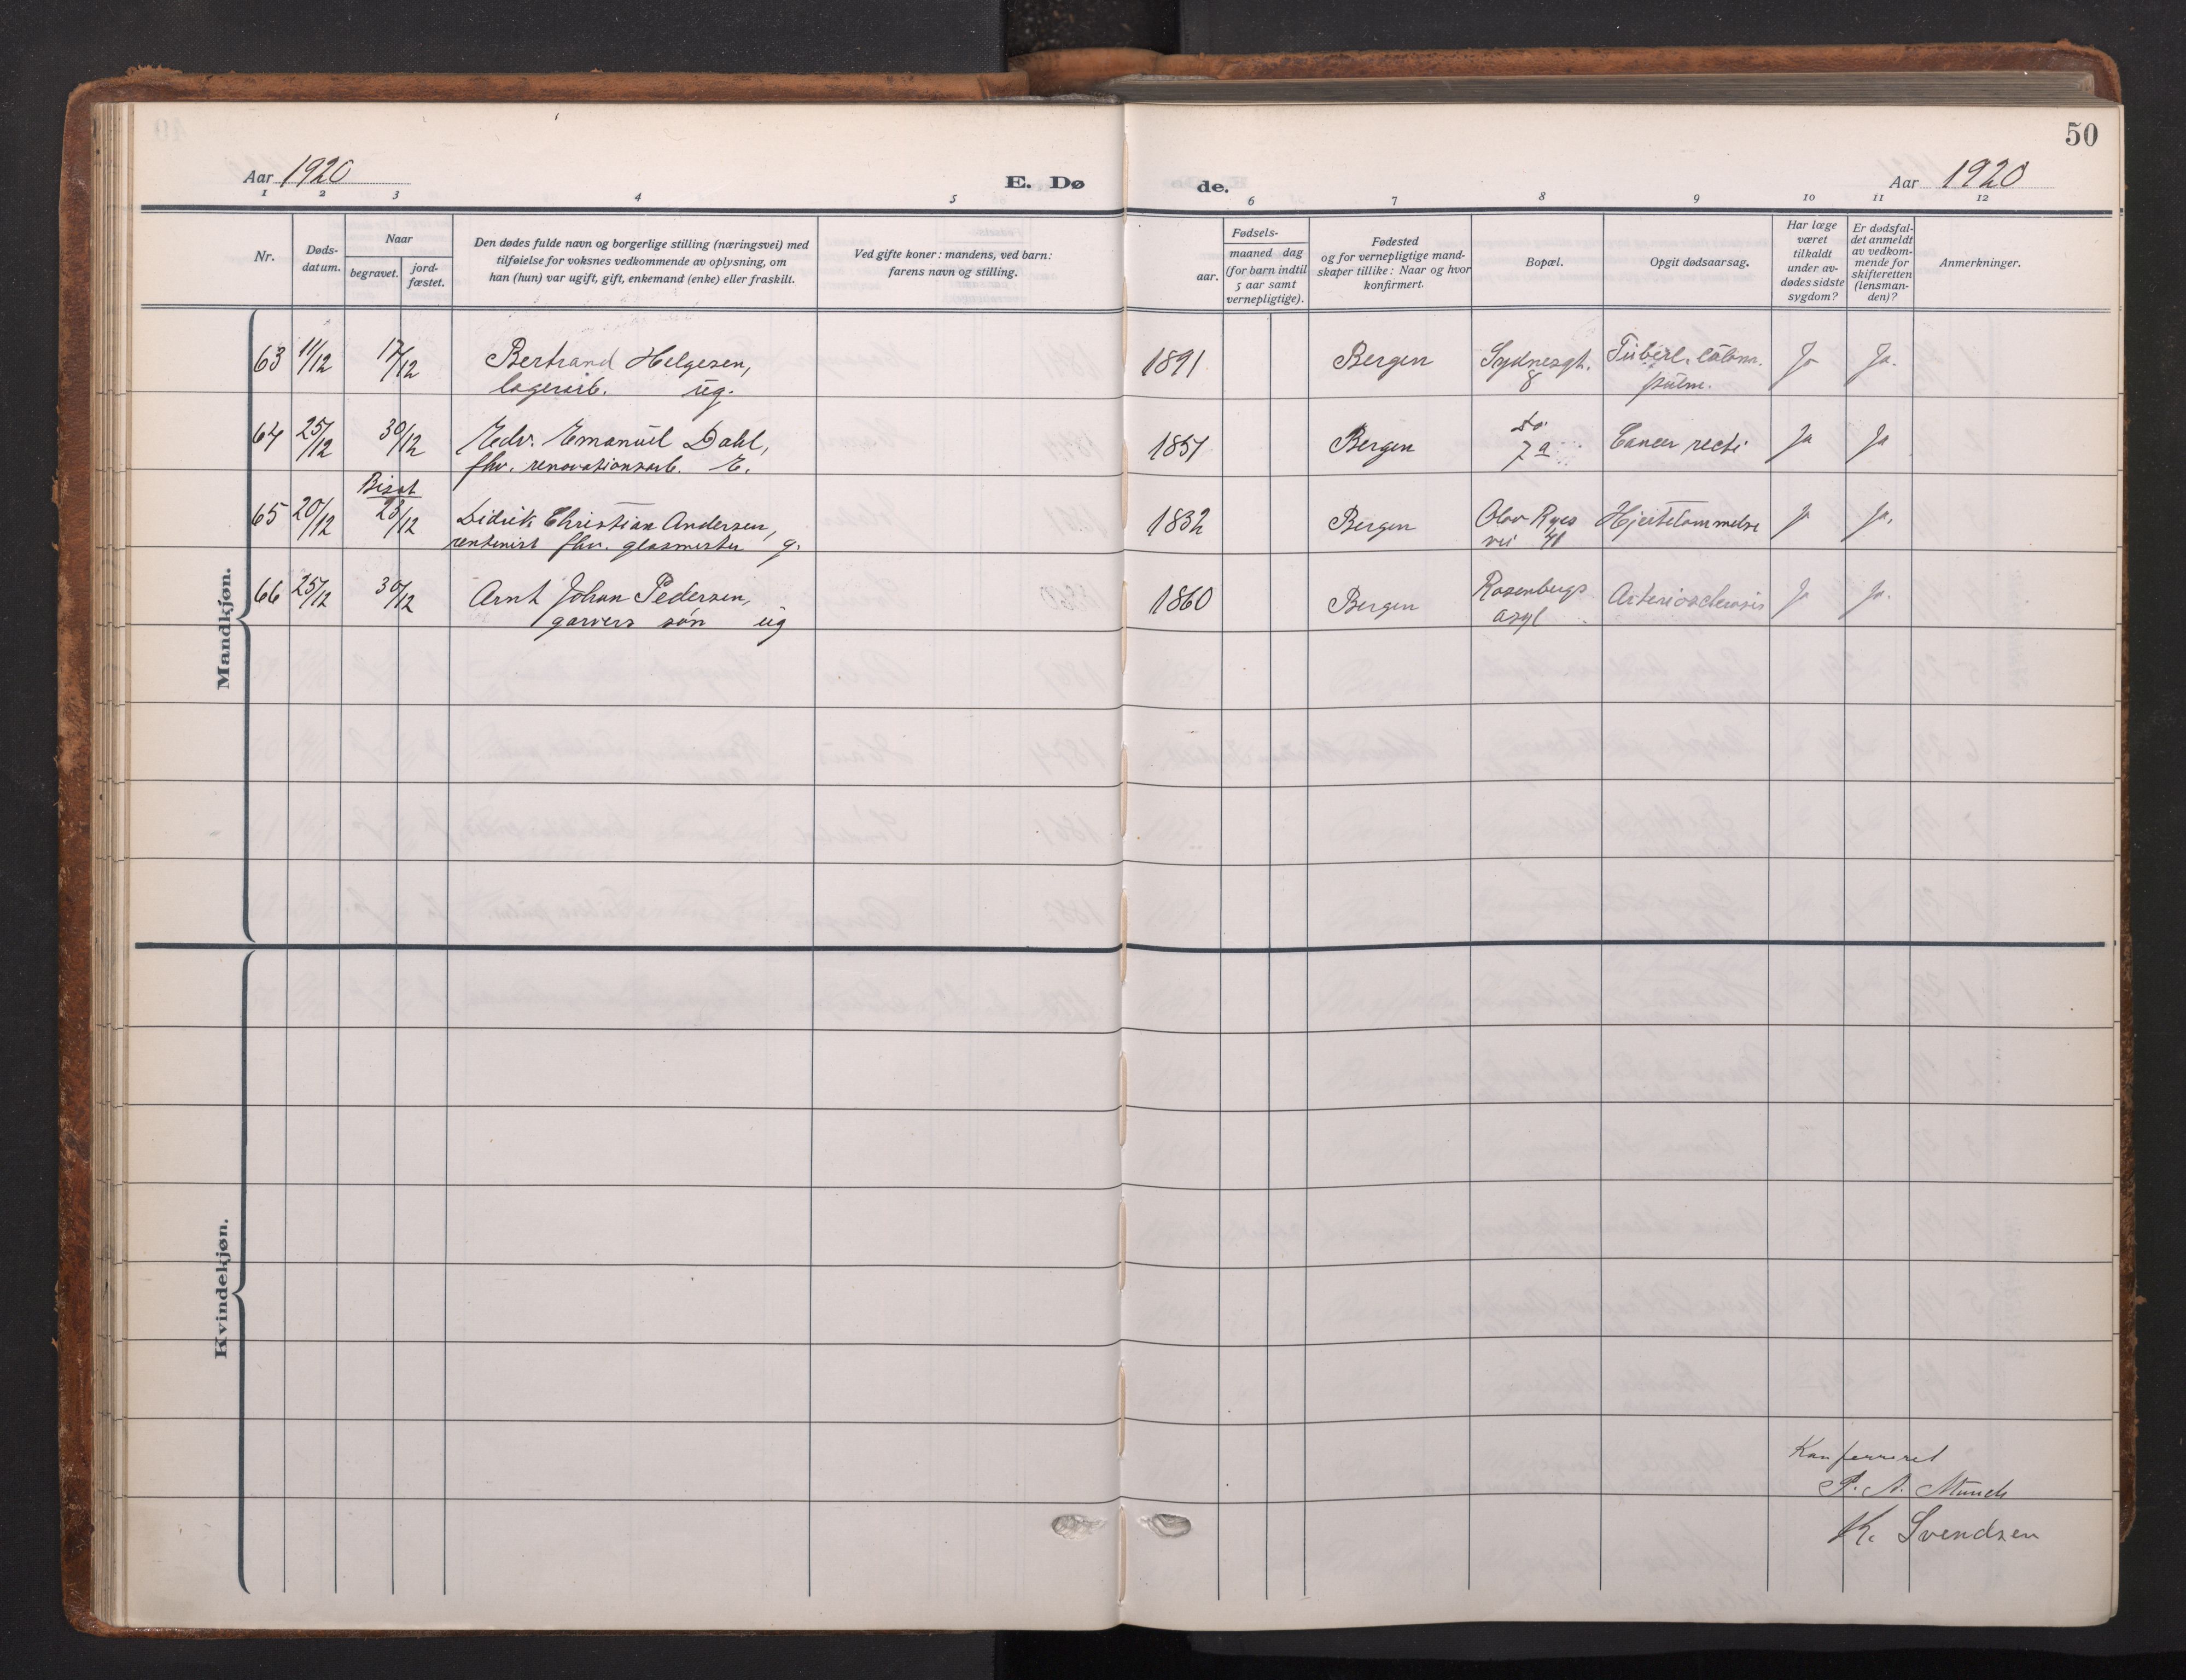 50
Aar 1920
E. Dø de.
Aar 1920
1 2 3 4 5 6 7 8 9 10 11 12
Nr.
Døds-
datum.
Naar
begravet.
jord-
fæstet.
Den dødes fulde navn og borgerlige stilling (næringsvei) med
tilføielse for voksnes vedkommende av oplysning, om
han (hun) var ugift, gift, enkemand (enke) eller fraskilt.
Ved gifte koner: mandens, ved barn:
farens navn og stilling.
Fødsels-
aar.
maaned dag
(for barn indtil
5 aar samt
vernepligtige).
Fødested
og for vernepligtige mand-
skaper tillike: Naar og hvor
konfirmert.
Bopæl.
Opgit dødsaarsag.
Har læge
været
tilkaldt
under av-
dødes sidste
sygdom?
Er dødsfal-
det anmeldt
av vedkom-
mende for
skifteretten
(lensman-
den)?
Anmerkninger.
Mandkjøn.
63 11/12 17/12 Bertrand Helgesen, 1891 Bergen Sydnesgt. Tüberk. pulm. Ja Ja.
lagerarb. ug. 8
64 25/12 30/12 Edv. Emanuel Dahl, 1851 Bergen do. 7a Cancer recti Ja Ja
fhv. renovationsarb. E.
Bisat
65 20/12 23/12 Didrik Christian Andersen, 1832 Bergen Olav Ryes Hjertelammelse Ja Ja.
rentenist fhv. glasmester g. vei 41
66 25/12 30/12 Arnt Johan Pedersen, 1860 Bergen Rosenbergs Arteriosclerosis Ja Ja.
garvers søn ug asyl
Kvindekjøn.
Konfereret
P. A. Munch
K. Svendsen